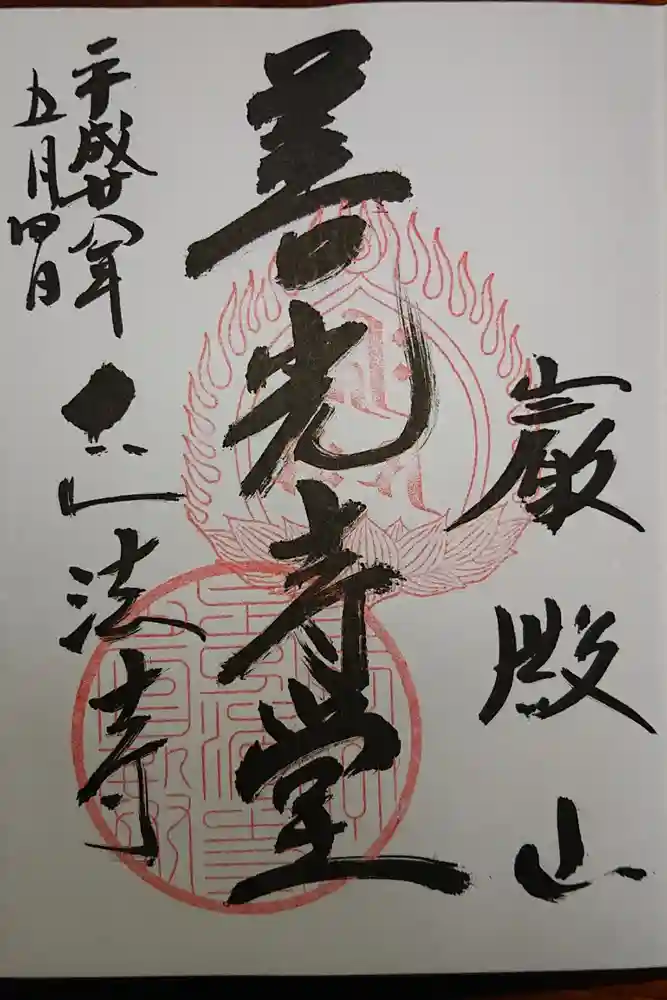 巌殿山
善光寺堂
正法寺
平成廿八年
五月四日